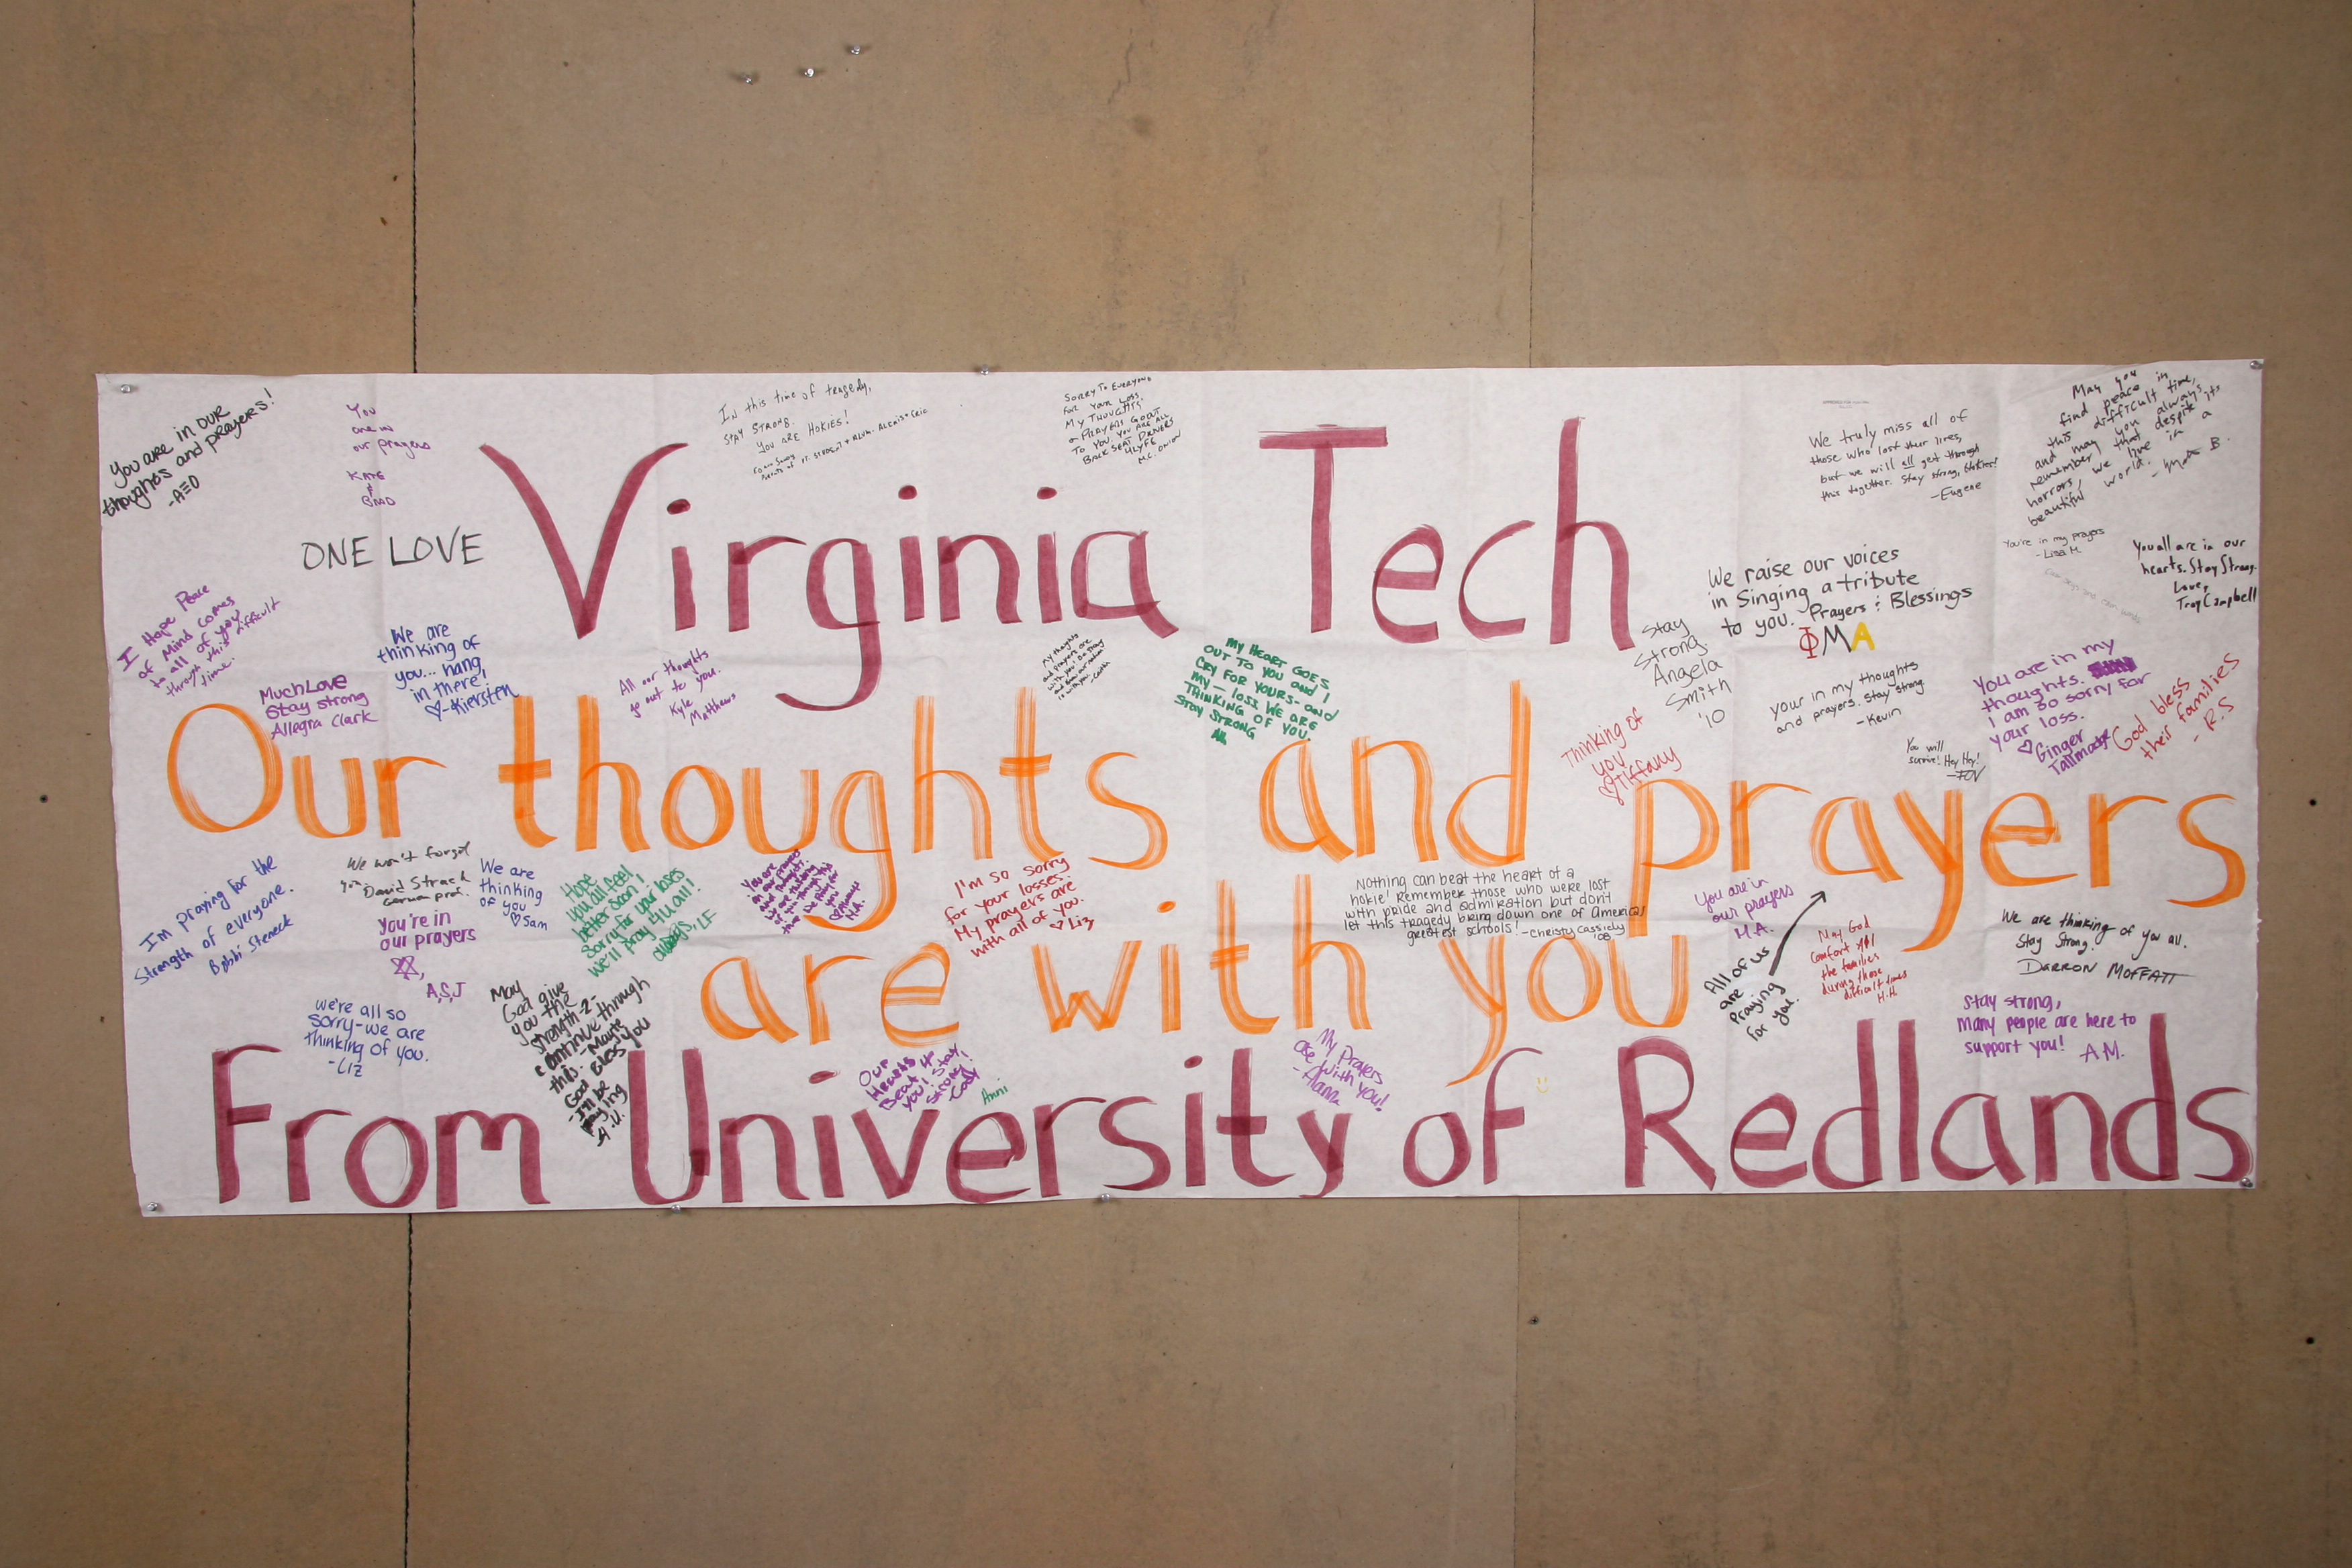 Virginia Tech
Our thoughts and prayers
are with you
From University of Redlands
You are in our
thoughts and prayers!
You
are in
our prayers
ONE LOVE
In this time of tragedy,
STAY STRONG.
YOU ARE HOKIES!
SORRY TO EVERYONE
FOR YOUR LOSS.
MY THOUGHTS
& PRAYERS GO OUT
TO YOU. YOU ARE ALL
BACK SEAT DRIVERS
We truly miss all of
those who lost their lives,
but we will all get through
this together. Stay strong, Hokies!
-Eugene
May you
find peace in
this difficult time,
and may you always
remember that despite its
horrors, we live in a
beautiful world.
You're in my prayers
-Lisa M.
You all are in our
hearts. Stay Strong.
Love,
Troy Campbell
I Hope Peace
of Mind comes
to all of you
through this difficult
time.
Much Love
Stay strong
Allegra Clark
We are
thinking of
you... hang
in there!
♡-Kiersten
All our thoughts
go out to you.
Kyle
Matthews
MY HEART GOES
OUT TO YOU AND I
CRY FOR YOURS- AND
MY - LOSS. WE ARE
THINKING OF YOU.
STAY STRONG
Stay
Strong
Angela
Smith
'10
We raise our voices
in Singing a tribute
to you. Prayers & Blessings
ΦMA
Thinking of
you
♡Tiffany
your in my thoughts
and prayers. Stay strong
-Kevin
You will
survive! Hey Hey!
You are in my
thoughts.
I am so sorry for
your loss.
♡Ginger
Tallmadge
God bless
their families
- R.S
I'm praying for the
Strength of everyone.
Bobbi Steneck
We won't forget
you David Strach
German prof.
You're in
our prayers
A,S,J
We are
thinking
of you
♡Sam
Hope
you all feel
better soon!
Sorry for your loses
we'll pray 4 U all!
always, LF
I'm so sorry
for your losses.
My prayers are
with all of you.
♡Liz
Nothing can beat the heart of a
hokie! Remember those who were lost
with pride and admiration but don't
let this tragedy bring down one of Americas
greatest schools! -Christy Cassidy
'08
You are in
our prayers
M.A.
All of us
are
praying
for you.
May God
comfort
the families
during these
difficult times
H.H.
We are thinking of you all.
Stay Strong.
DARRON MOFFATT
Stay strong,
Many people are here to
support you! A.M.
we're all so
sorry-we are
thinking of you.
-Liz
May
God give
you the
strength -2-
continue through
this. -Mayte
God Bless you
-I'll be
praying
Our
Hearts
Beat 4
you! Stay
Strong!
-Cody
Anni
My Prayers
are with you!